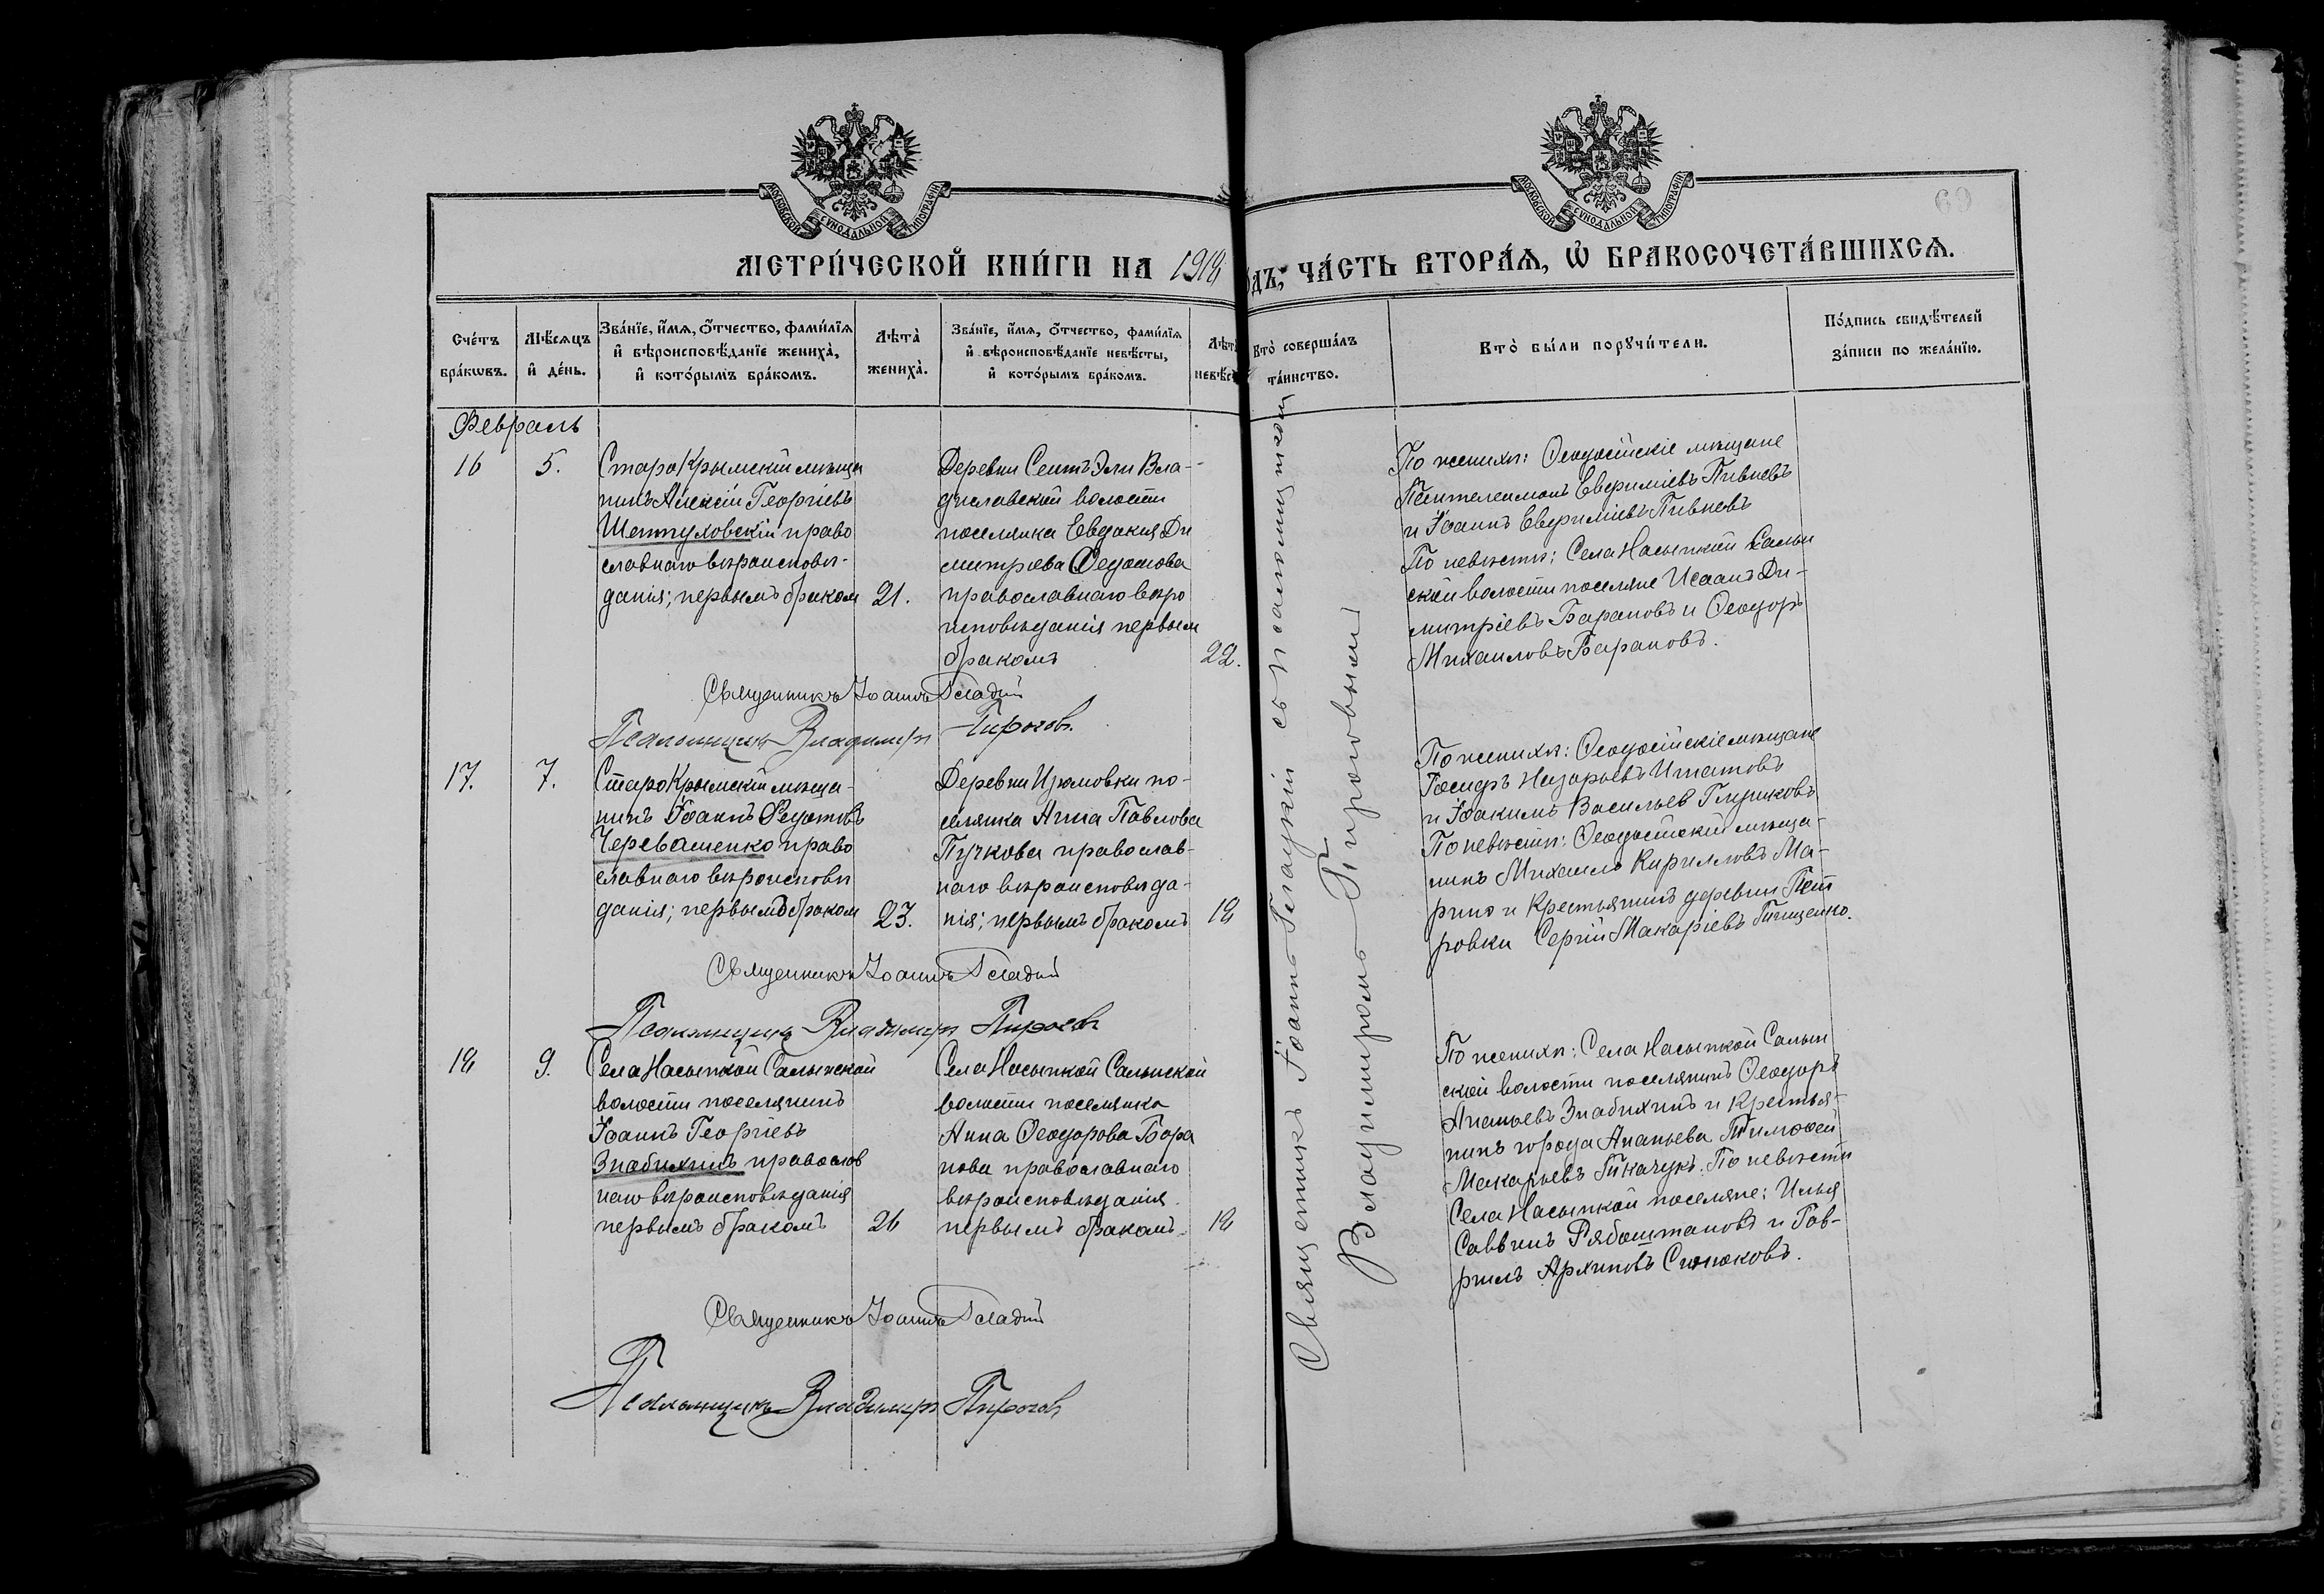 МОСКОВСКОЙ СѴНОДАЛЬНОЙ ТИПОГРАФІИ
МОСКОВСКОЙ СѴНОДАЛЬНОЙ ТИПОГРАФІИ
69
МЕТРИ́ЧЕСКОЙ КНИ́ГИ НА 1918
ОДЪ, ЧА́СТЬ ВТОРА́Ѧ, Ѡ БРАКОСОЧЕТА́ВШИХСѦ.
Сче́тъ бра́кѡвъ.
Мѣ́сѧцъ и де́нь.
Зва́нїе, и҆́мѧ, ѻ҆́тчество, фами́лїѧ
и҆ вѣроисповѣ́данїе жениха̀,
и҆ кото́рымъ бра́комъ.
Лѣта̀ жениха̀.
Зва́нїе, и҆́мѧ, ѻ҆́тчество, фами́лїѧ
и҆ вѣроисповѣ́данїе невѣ́сты,
и҆ кото́рымъ бра́комъ.
Лѣта̀ невѣ́с
Кто̀ соверша́лъ
та́инство.
Кто̀ бы́ли порꙋчи́тели.
По́дпись свидѣ́телей
за́писи по жела́нїю.
Февраль
16
5.
Старо Крымскій мѣща
нинъ Алексій Георгіевъ
Шептуховскій право
славнаго вѣроисповѣ-
данія; первымъ браком
21.
Деревни Сеитъ Эли Вла-
диславской волости
поселянка Евдокия Ди
митріева Ѳедотова
православнаго вѣро
исповѣданія первым
бракомъ
22.
По женихѣ: Ѳеодосійскіе мѣщане
Пантелеимонъ Евѳиміевъ Пивневъ
и Іоаннъ Евѳиміевъ Пивневъ
По невѣстѣ: Села Насыпкой Салын
ской волости поселяне Исаакъ Ди-
митріевъ Барановъ и Ѳеодоръ
Михаиловъ Барановъ.
Священникъ Іоаннъ Гладкій
Псаломщикъ Владимиръ Пироговъ.
17.
7.
Старо Крымскій мѣща-
нинъ Іоаннъ Ѳедотовъ
Черевашенко право
славнаго вѣроисповѣ
данія; первымъ браком
23.
Деревни Изюмовки по-
селянка Анна Павлова
Пучкова православ-
наго вѣроисповѣда-
нія; первымъ бракомъ
18
По женихѣ: Ѳеодосійскіе мѣщане
Іосифъ Назарьевъ Игнатовъ
и Іоакимъ Васильев Глушковъ
По невѣстѣ: Ѳеодосійскій мѣща-
нинъ Михаилъ Кирилловъ Ма-
рино и Крестьянинъ деревни Пет
ровки Сергій Макаріевъ Тищенко.
Священникъ Іоаннъ Гладкій
Псаломщикъ Владимиръ Пироговъ
18
9.
Села Насыпкой Салынской
волости поселянинъ
Іоаннъ Георгіевъ
Знабихинъ православ
наго вѣроисповѣданія
первымъ бракомъ
26
Села Насыпкой Салынской
волости поселянка
Анна Ѳеодорова Бара
нова православнаго
вѣроисповѣданія
первымъ бракомъ.
18
По женихѣ: Села Насыпкой Салын
ской волости поселянинъ Ѳеодоръ
Ананьевъ Знабихинъ и Крестья-
нинъ города Ананьева Тимоѳей
Макарьевъ Ткачукъ. По невѣстѣ
Села Насыпкой поселяне: Илья
Саввинъ Рябоштановъ и Гав-
риилъ Архиповъ Синюковъ.
Священникъ Іоаннъ Гладкій
Псаломщикъ Владимиръ Пироговъ
Священникъ Іоаннъ Гладкій съ псаломщиком
Владимиромъ Пироговымъ